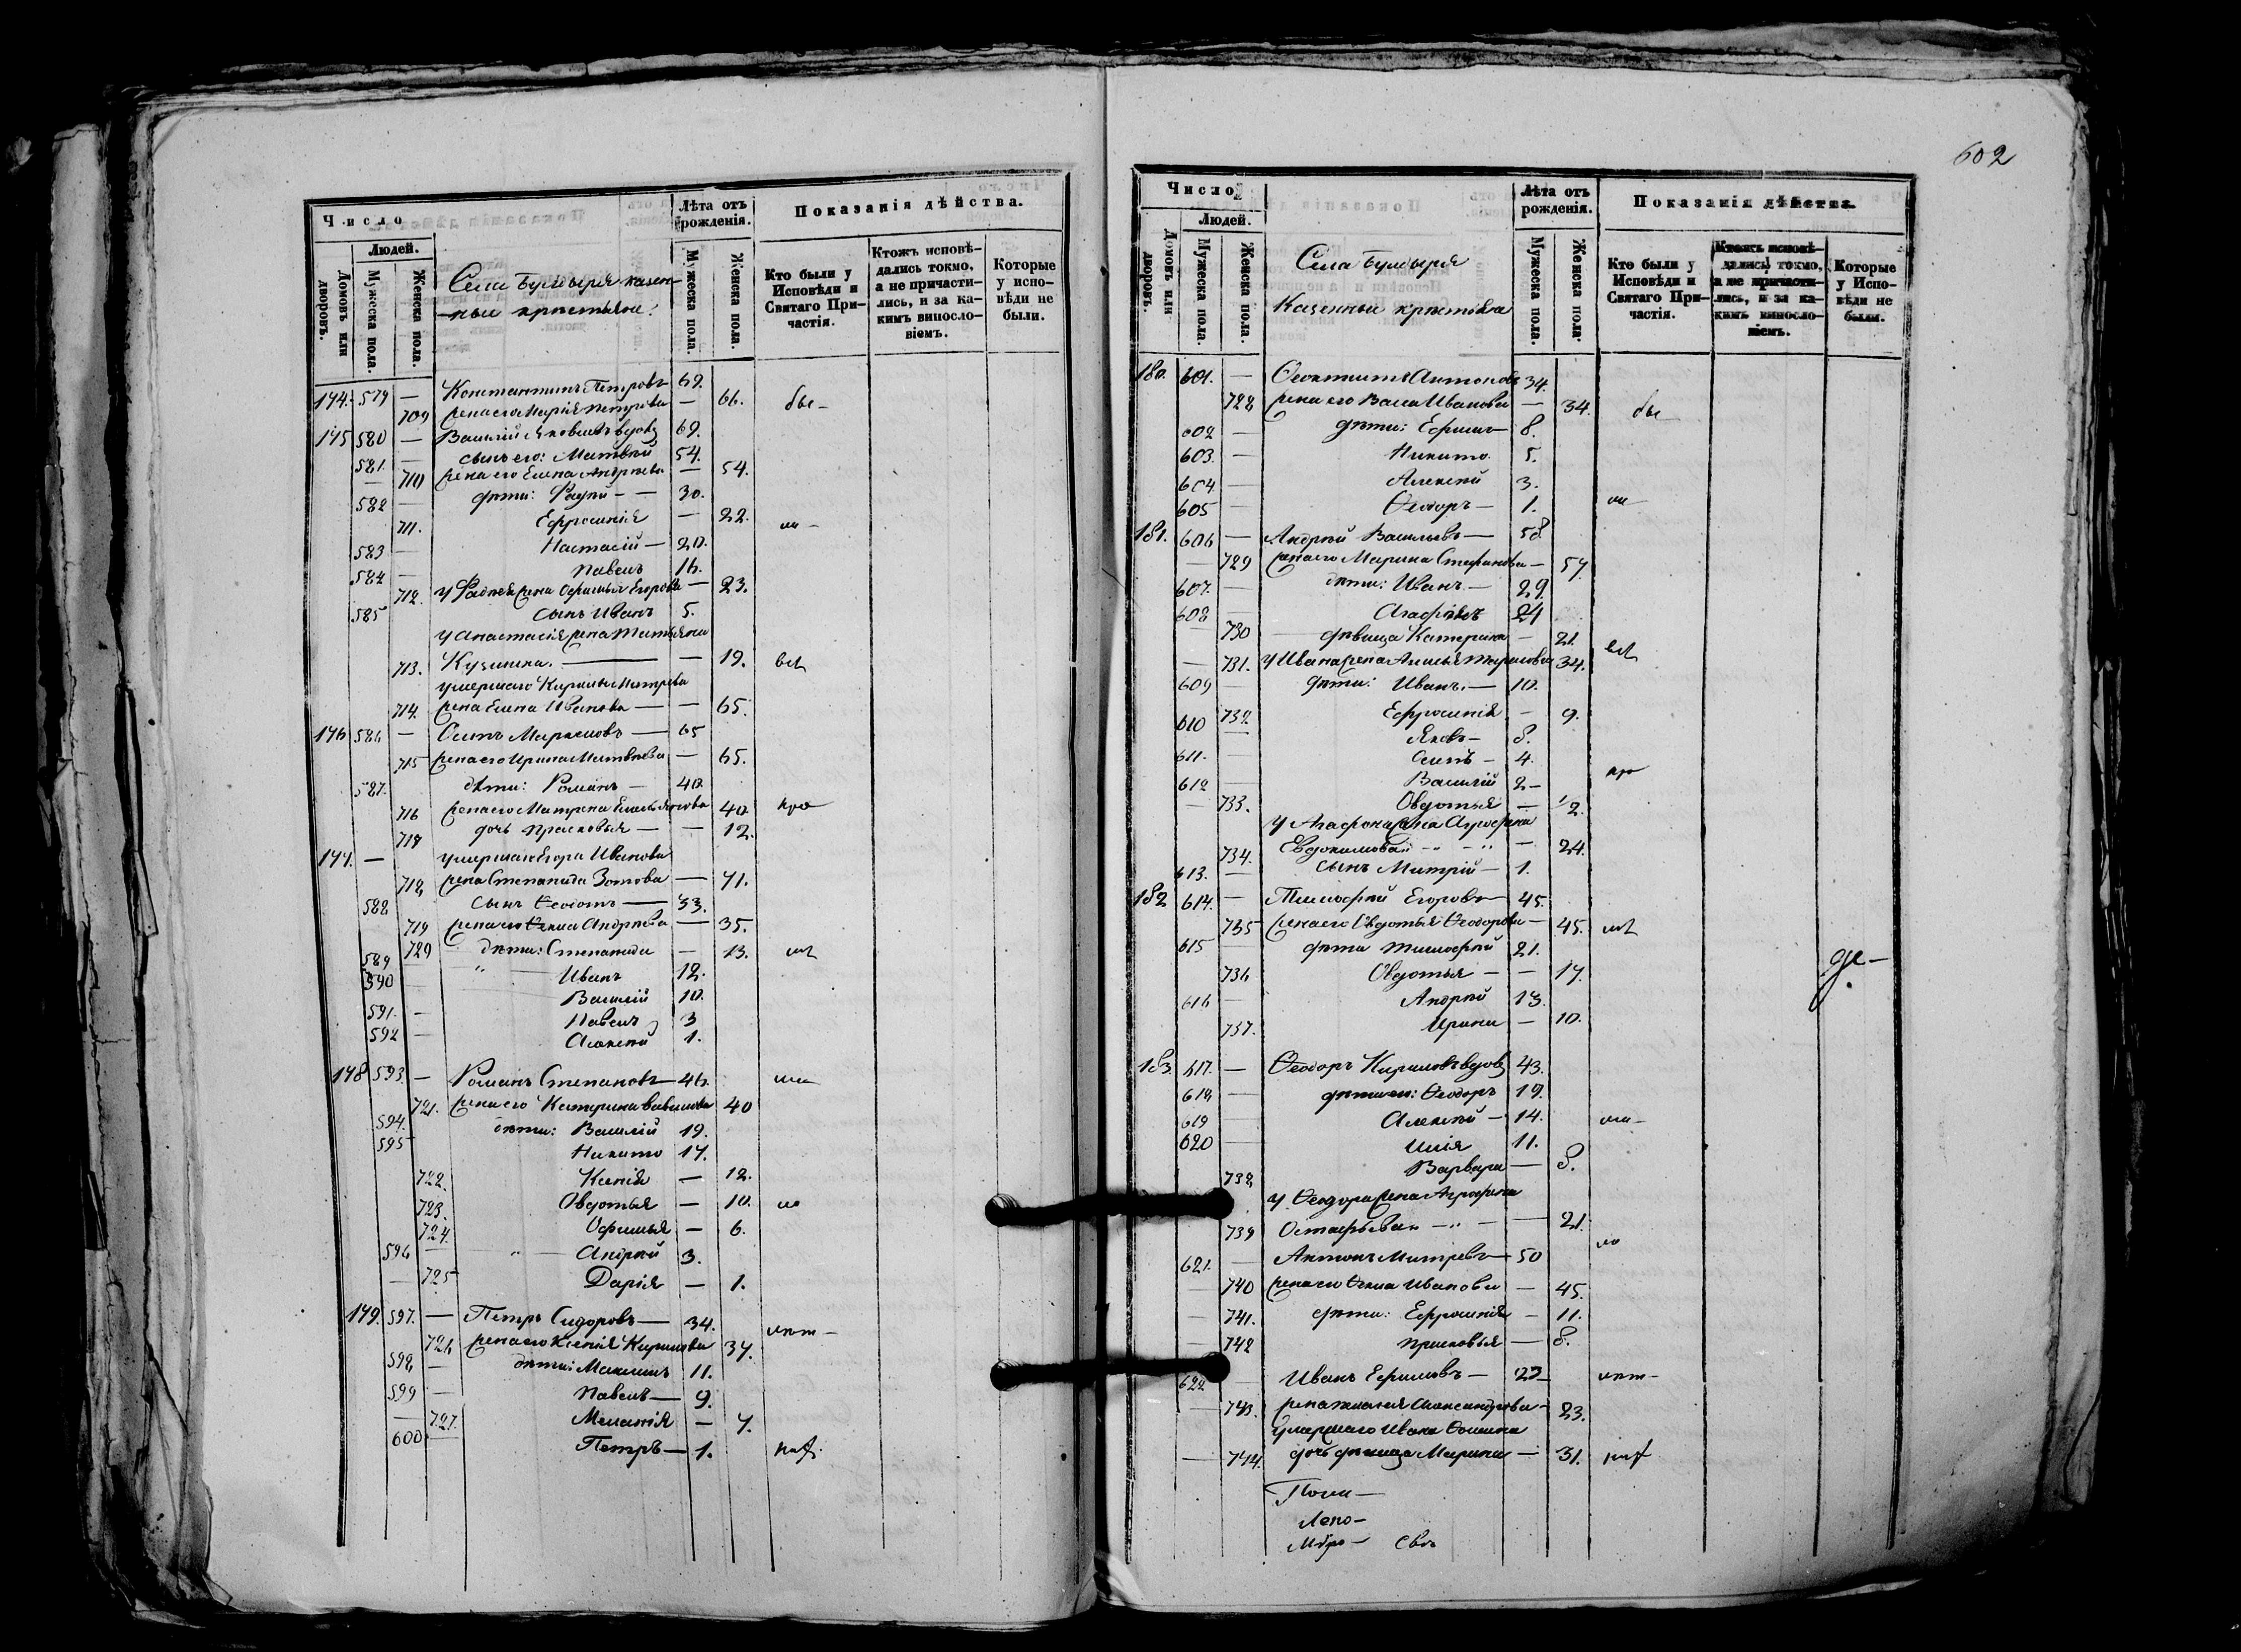 602
Число
Людей.
Домовъ или дворовъ.
Мужеска пола.
Женска пола.
Села Булдыря казен-
ные крестьяне:
Лѣта отъ рожденія.
Мужеска пола.
Женска пола.
Показанія дѣйства.
Кто были у Исповѣди и Святаго При-частія.
Ктожъ исповѣ-дались токмо, а не причасти-лись, и за ка-кимъ винослo-віемъ.
Которые у испо-вѣди не были.
174. 579 — Константинъ Петровъ 69.
709 жена его Марія Петрова — 66. бы-
175 580 — Василій Яковлевъ вдовъ 69.
581. — сынъ его: Матвѣй 54.
710 жена его Елена Андреева — 54.
582 — дѣти: Фадѣй — — 30.
711. Ефросинія — 22. ли-
583 — Настасій — 20.
584 — Павелъ 16.
712. у Фадѣя жена Офимья Егорова — 23.
585 сынъ Иванъ 5.
у Анастасія жена Татьяна
713. Кузмина. — — 19. всѣ
умершаго Карпа Митрева
714. жена Елена Иванова — — 65.
176 586 — Осипъ Мараковъ — 65
715 жена его Ирина Матвѣева — 65.
587. дѣти: Романъ — 40.
716 жена его Матрена Емельянова 40 кро
717 дочь Прасковья — — 12.
177. — умершаго Егора Иванова
718 жена Степанида Зотова — 71.
588 сынъ Ѳедотъ — 33.
719 жена его Ѳекла Андреева — 35.
720 дѣти: Степанида — 13. мѣ
589
590 Иванъ 12.
Василій 10.
591. — Павелъ 3
592 — Алексѣй 1.
178 593 — Романъ Степановъ — 46.
721. жена его Катерина Вавилова 40
594. дѣти: Василій 19.
595 Никита 17.
722. Ксенія — 12.
723. Овдотья — 10. ло
724. Офимья — 6.
596 Андрей 3.
725 Дарія — 1.
179. 597. — Петръ Сидоровъ — 34. лѣт-
726 жена его Ксенія Карпова 37.
598 — дѣти: Максимъ 11.
599 — Павелъ — 9.
— 727. Меланія — 7.
600 Петръ — 1.
Число
Людей.
Домовъ или дворовъ.
Мужеска пола.
Женска пола.
Села Булдыря
Казенные крестьяне
Лѣта отъ рожденія.
Мужеска пола.
Женска пола
Показанія дѣйства.
Кто были у Исповѣди и Святаго При-частія.
Ктожъ исповѣ-дались токмо, а не причасти-лись, и за ка-кимъ винослo-віемъ.
Которые у Испо-вѣди не были.
180. 601. — Ѳеоктистъ Антоновъ 34.
728 жена его Васса Иванова — 34. бы
602 — дѣти: Ефимъ 8.
603. — Никита 5.
604 — Алексѣй 3.
605 — Ѳедоръ — 1. ли
181. 606 — Андрей Васильевъ — 58
— 729 жена его Марина Степанова — 57.
607. — дѣти: Иванъ — 29.
608 — Агафонъ 24
730 дѣвица Катерина — 21.
— 731. у Ивана жена Анисья Тарасова 34. всѣ
609 — дѣти: Иванъ. — 10.
610 732 Ефросинія — 9.
Яковъ — 8.
611. — Осипъ — 4.
612 — Василій 2 — кро
— 733. Овдотья — 1/2.
у Агафона жена Агрофена
734. Евдокимова — 24.
613. — сынъ Митрій — 1.
182 614. — Тимофѣй Егоровъ 45.
735 жена его Овдотья Ѳеодорова — 45. мѣ
615 — дѣти Тимофѣй 21.
736 Овдотья — — 17. де-
616 — Андрей 13.
737. Ирина — 10.
183. 617. — Ѳеодоръ Кириловъ вдовъ 43.
618 — дѣти его: Ѳеодоръ 19.
619 Алексѣй — 14.
620 — Илія 11.
738 Варвара — 8.
у Ѳеодора жена Агрофена
739 Остафьева — 21.
621. — Антонъ Митревъ — 50 ло
— 740 жена его Ѳекла Иванова — 45.
— 741. дѣти: Ефросинія — 11.
— 742 Прасковья — 8.
622 — Иванъ Ефимовъ — 23 лѣт-
— 743. жена Маланія Александрова — 23.
умершаго Ивана Ѳомина
— 744. дочь дѣвица Марина — 31.